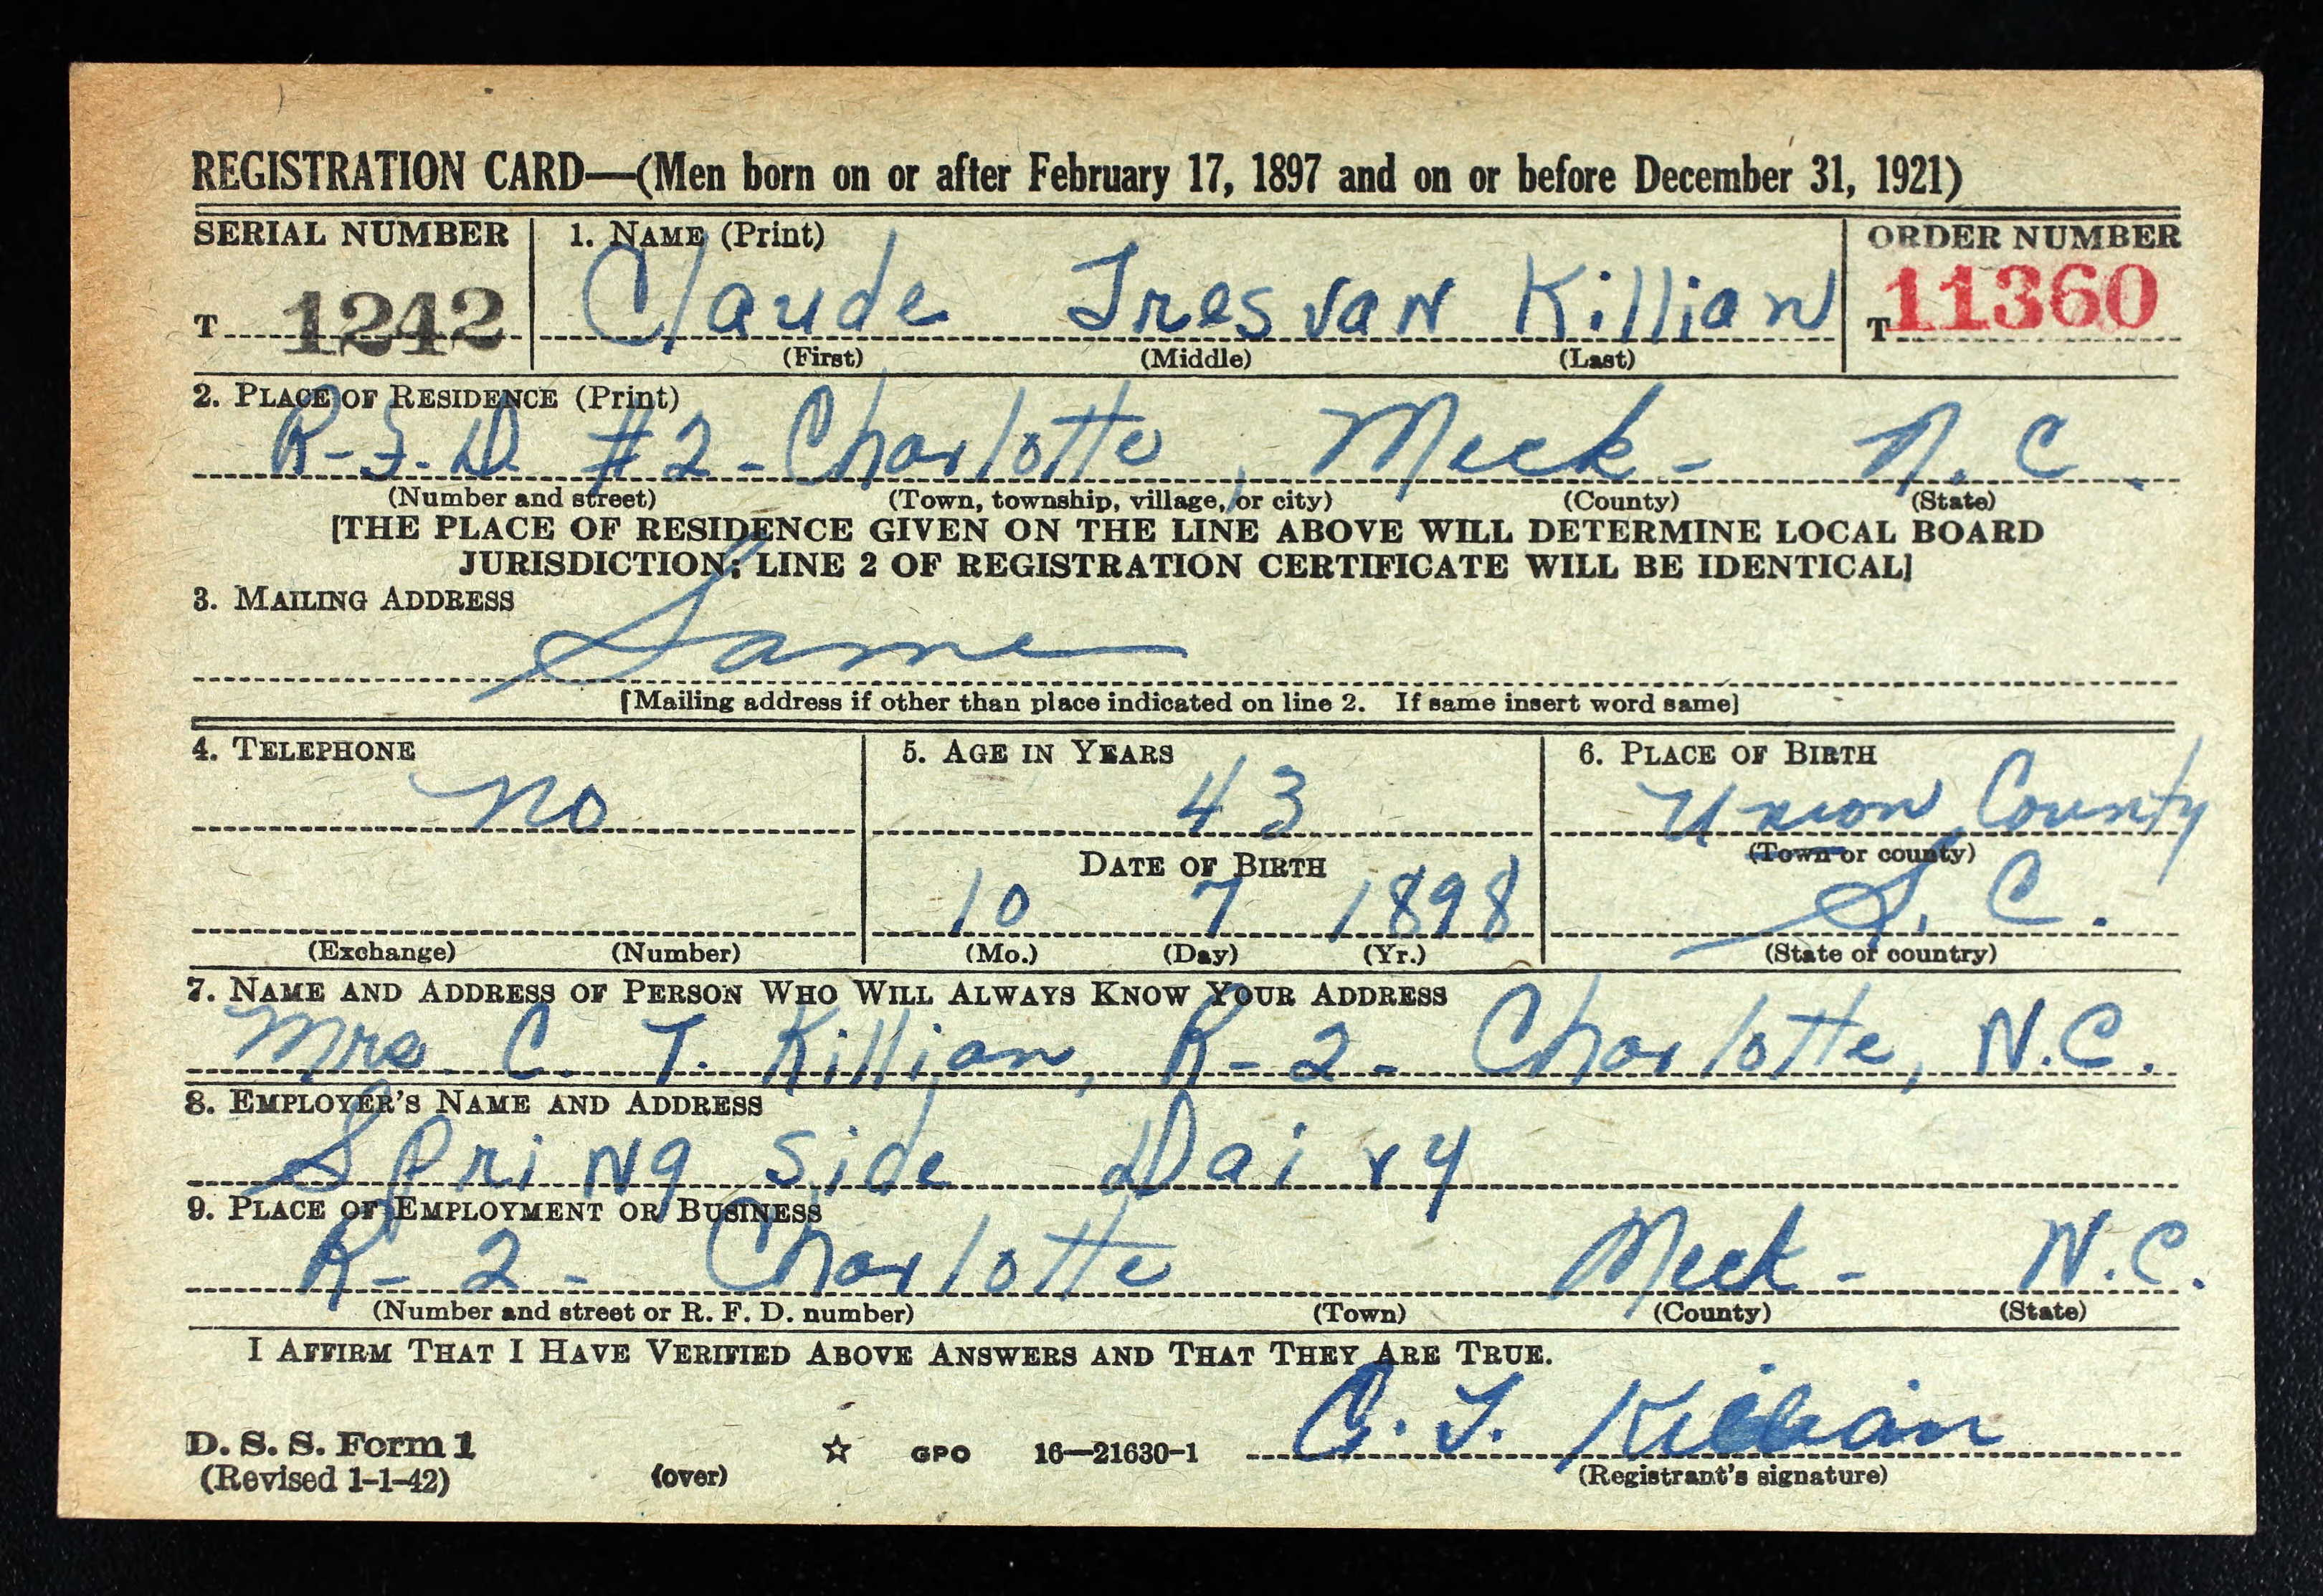 REGISTRATION CARD—(Men born on or after February 17, 1897 and on or before December 31, 1921)
SERIAL NUMBER 1. NAME (Print) ORDER NUMBER
T 1242 Claude Tresvan Killian T 11360
(First) (Middle) (Last)
2. PLACE OF RESIDENCE (Print)
R-F.D. #2 - Charlotte, Meck- N.C.
(Number and street) (Town, township, village, or city) (County) (State)
[THE PLACE OF RESIDENCE GIVEN ON THE LINE ABOVE WILL DETERMINE LOCAL BOARD
JURISDICTION; LINE 2 OF REGISTRATION CERTIFICATE WILL BE IDENTICAL]
3. MAILING ADDRESS
Same
[Mailing address if other than place indicated on line 2. If same insert word same]
4. TELEPHONE 5. AGE IN YEARS 6. PLACE OF BIRTH
no 43 Union County
DATE OF BIRTH (Town or county)
10 7 1898 S.C.
(Exchange) (Number) (Mo.) (Day) (Yr.) (State or country)
7. NAME AND ADDRESS OF PERSON WHO WILL ALWAYS KNOW YOUR ADDRESS
Mrs. C. T. Killian, R-2- Charlotte, N.C.
8. EMPLOYER'S NAME AND ADDRESS
Spring side Dairy
9. PLACE OF EMPLOYMENT OR BUSINESS
R-2- Charlotte Meck- N.C.
(Number and street or R. F. D. number) (Town) (County) (State)
I AFFIRM THAT I HAVE VERIFIED ABOVE ANSWERS AND THAT THEY ARE TRUE.
C. T. Killian
D. S. S. Form 1
(Revised 1-1-42) (over) ☆ GPO 16—21630-1 (Registrant's signature)